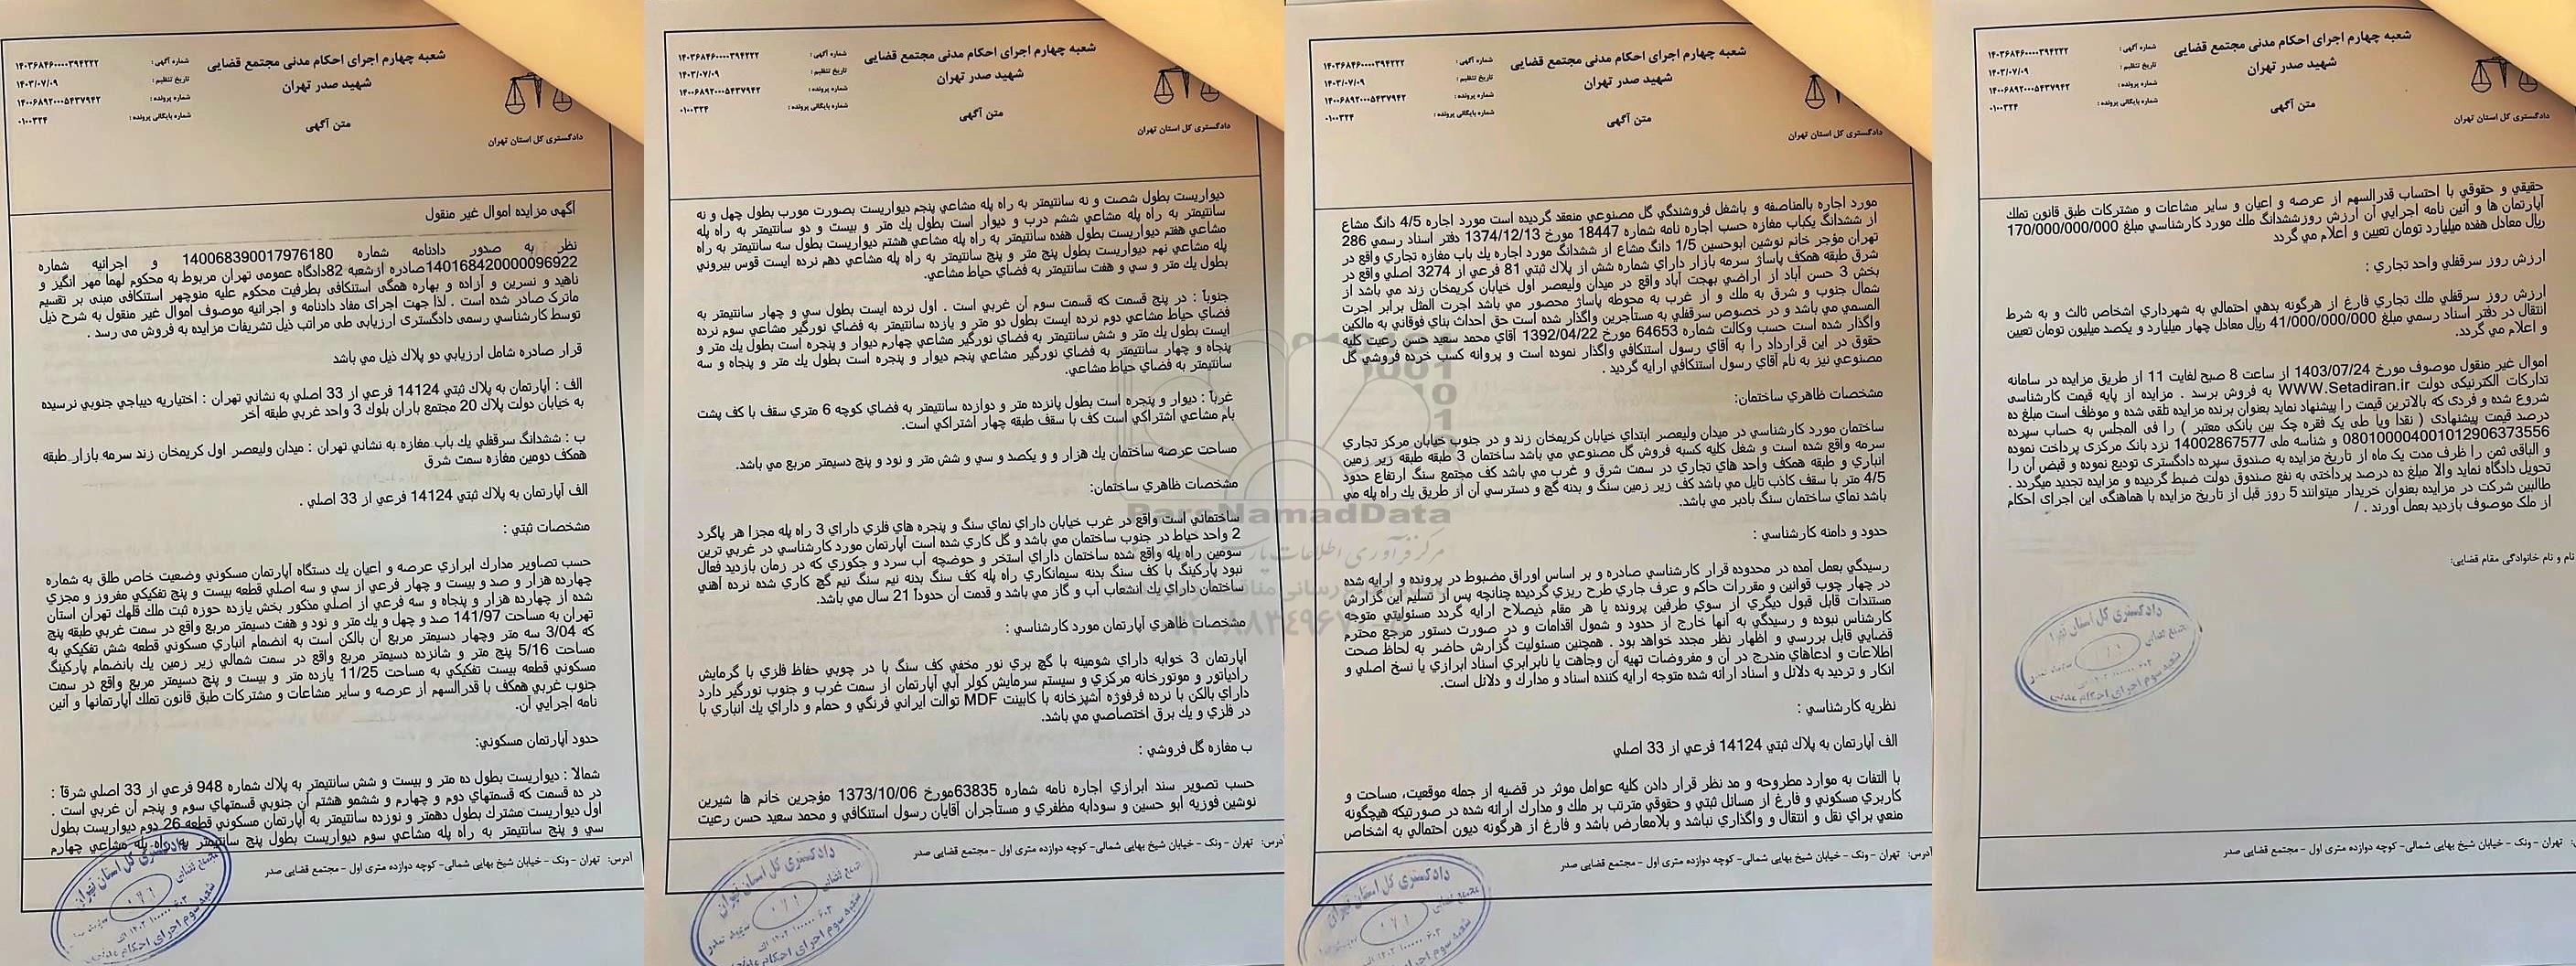 شعبه چهارم اجرای احکام مدنی مجتمع قضایی
شهید صدر تهران
متن آگهی
شماره آگهی : ۱۴۰۳۶۸۴۶۰۰۰۰۳۹۴۲۲۲
تاریخ تنظیم : ۱۴۰۳/۰۷/۰۹
شماره پرونده : ۱۴۰۰۶۸۹۲۰۰۰۵۴۳۷۹۴۲
شماره بایگانی پرونده : ۰۱۰۰۳۲۴
دادگستری کل استان تهران
آگهی مزایده اموال غیر منقول
نظر به صدور دادنامه شماره 140068390017976180 و اجرائیه شماره
140168420000096922صادره ازشعبه 82دادگاه عمومی تهران مربوط به محکوم لهما مهر انگیز و
ناهید و نسرین و آزاده و بهاره همگی استنکافی بطرفیت محکوم علیه منوچهر استنکافی مبنی بر تقسیم
ماترک صادر شده است . لذا جهت اجرای مفاد دادنامه و اجرائیه موصوف اموال غیر منقول به شرح ذیل
توسط کارشناسی رسمی دادگستری ارزیابی طی مراتب ذیل تشریفات مزایده به فروش می رسد .
قرار صادره شامل ارزيابي دو پلاك ذيل مي باشد
الف : آپارتمان به پلاك ثبتي 14124 فرعي از 33 اصلي به نشاني تهران : اختياريه ديباجي جنوبي نرسيده
به خيابان دولت پلاك 20 مجتمع باران بلوك 3 واحد غربي طبقه آخر
ب : ششدانگ سرقفلي يك باب مغازه به نشاني تهران : ميدان وليعصر اول كريمخان زند سرمه بازار طبقه
همكف دومين مغازه سمت شرق
الف آپارتمان به پلاك ثبتي 14124 فرعي از 33 اصلي .
مشخصات ثبتي :
حسب تصاوير مدارك ابرازي عرصه و اعيان يك دستگاه آپارتمان مسكوني وضعيت خاص طلق به شماره
چهارده هزار و صد و بيست و چهار فرعي از سي و سه اصلي قطعه بيست و پنج تفكيكي مفروز و مجزي
شده از چهارده هزار و پنجاه و سه فرعي از اصلي مذكور بخش يازده حوزه ثبت ملك قلهك تهران استان
تهران به مساحت 141/97 صد و چهل و يك متر و نود و هفت دسيمتر مربع واقع در سمت غربي طبقه پنج
كه 3/04 سه متر وچهار دسيمتر مربع آن بالكن است به انضمام انباري مسكوني قطعه شش تفكيكي به
مساحت 5/16 پنج متر و شانزده دسيمتر مربع واقع در سمت شمالي زير زمين يك بانضمام پاركينگ
مسكوني قطعه بيست تفكيكي به مساحت 11/25 يازده متر و بيست و پنج دسيمتر مربع واقع در سمت
جنوب غربي همكف با قدرالسهم از عرصه و ساير مشاعات و مشتركات طبق قانون تملك آپارتمانها و آئين
نامه اجرايي آن.
حدود آپارتمان مسكوني:
شمالا : ديواريست بطول ده متر و بيست و شش سانتيمتر به پلاك شماره 948 فرعي از 33 اصلي شرقآ :
در ده قسمت كه قسمتهاي دوم و چهارم و ششمو هشتم آن جنوبي قسمتهاي سوم و پنجم آن غربي است .
اول ديواريست مشترك بطول دهمتر و نوزده سانتيمتر به آپارتمان مسكوني قطعه 26 دوم ديواريست بطول
سي و پنج سانتيمتر به راه پله مشاعي سوم ديواريست بطول پنج سانتيمتر به راه پله مشاعي چهارم
آدرس: تهران - ونک - خیابان شیخ بهایی شمالی- کوچه دوازده متری اول - مجتمع قضایی صدر
شعبه چهارم اجرای احکام مدنی مجتمع قضایی
شهید صدر تهران
متن آگهی
شماره آگهی : ۱۴۰۳۶۸۴۶۰۰۰۰۳۹۴۲۲۲
تاریخ تنظیم : ۱۴۰۳/۰۷/۰۹
شماره پرونده : ۱۴۰۰۶۸۹۲۰۰۰۵۴۳۷۹۴۲
شماره بایگانی پرونده : ۰۱۰۰۳۲۴
دادگستری کل استان تهران
ديواريست بطول شصت و نه سانتيمتر به راه پله مشاعي پنجم ديواريست بصورت مورب بطول چهل و نه
سانتيمتر به راه پله مشاعي ششم درب و ديوار است بطول يك متر و بيست و دو سانتيمتر به راه پله
مشاعي هفتم ديواريست بطول هفده سانتيمتر به راه پله مشاعي هشتم ديواريست بطول سه سانتيمتر به راه
پله مشاعي نهم ديواريست بطول پنج متر و پنج سانتيمتر به راه پله مشاعي دهم نرده ايست قوس بيروني
بطول يك متر و سي و هفت سانتيمتر به فضاي حياط مشاعي.
جنوبآ : در پنج قسمت كه قسمت سوم آن غربي است . اول نرده ايست بطول سي و چهار سانتيمتر به
فضاي حياط مشاعي دوم نرده ايست بطول دو متر و يازده سانتيمتر به فضاي نورگير مشاعي سوم نرده
ايست بطول يك متر و شش سانتيمتر به فضاي نورگير مشاعي چهارم ديوار و پنجره است بطول يك متر و
پنجاه و چهار سانتيمتر به فضاي نورگير مشاعي پنجم ديوار و پنجره است بطول يك متر و پنجاه و سه
سانتيمتر به فضاي حياط مشاعي.
غربآ : ديوار و پنجره است بطول پانزده متر و دوازده سانتيمتر به فضاي كوچه 6 متري سقف با كف پشت
بام مشاعي اشتراكي است كف با سقف طبقه چهار اشتراكي است.
مساحت عرصه ساختمان يك هزار و و يكصد و سي و شش متر و نود و پنج دسيمتر مربع مي باشد.
مشخصات ظاهري ساختمان:
ساختماني است واقع در غرب خيابان داراي نماي سنگ و پنجره هاي فلزي داراي 3 راه پله مجزا هر پاگرد
2 واحد حياط در جنوب ساختمان مي باشد و گل كاري شده است آپارتمان مورد كارشناسي در غربي ترين
سومين راه پله واقع شده ساختمان داراي استخر و حوضچه آب سرد و جكوزي كه در زمان بازديد فعال
نبود پاركينگ با كف سنگ بدنه سيمانكاري راه پله كف سنگ بدنه نيم سنگ نيم گچ كاري شده نرده آهني
ساختمان داراي يك انشعاب آب و گاز مي باشد و قدمت آن حدودآ 21 سال مي باشد.
مشخصات ظاهري آپارتمان مورد كارشناسي :
آپارتمان 3 خوابه داراي شومينه با گچ بري نور مخفي كف سنگ با در چوبي حفاظ فلزي با گرمايش
رادياتور و موتورخانه مركزي و سيستم سرمايش كولر آبي آپارتمان از سمت غرب و جنوب نورگير دارد
داراي بالكن با نرده فرفوژه آشپزخانه با كابينت MDF توالت ايراني فرنگي و حمام و داراي يك انباري با
در فلزي و يك برق اختصاصي مي باشد.
ب مغازه گل فروشي :
حسب تصوير سند ابرازي اجاره نامه شماره 63835مورخ 1373/10/06 مؤجرين خانم ها شيرين
نوشين فوزيه ابو حسين و سودابه مظفري و مستأجران آقايان رسول استنكافي و محمد سعيد حسن رعيت
آدرس: تهران - ونک - خیابان شیخ بهایی شمالی- کوچه دوازده متری اول - مجتمع قضایی صدر
شعبه چهارم اجرای احکام مدنی مجتمع قضایی
شهید صدر تهران
متن آگهی
شماره آگهی : ۱۴۰۳۶۸۴۶۰۰۰۰۳۹۴۲۲۲
تاریخ تنظیم : ۱۴۰۳/۰۷/۰۹
شماره پرونده : ۱۴۰۰۶۸۹۲۰۰۰۵۴۳۷۹۴۲
شماره بایگانی پرونده : ۰۱۰۰۳۲۴
دادگستری کل استان تهران
مورد اجاره بالمناصفه و باشغل فروشندگي گل مصنوعي منعقد گرديده است مورد اجاره 4/5 دانگ مشاع
از ششدانگ يكباب مغازه حسب اجاره نامه شماره 18447 مورخ 1374/12/13 دفتر اسناد رسمي 286
تهران مؤجر خانم نوشين ابوحسين 1/5 دانگ مشاع از ششدانگ مورد اجاره يك باب مغازه تجاري واقع در
شرق طبقه همكف پاساژ سرمه بازار داراي شماره شش از پلاك ثبتي 81 فرعي از 3274 اصلي واقع در
بخش 3 حسن آباد از اراضي بهجت آباد واقع در ميدان وليعصر اول خيابان كريمخان زند مي باشد از
شمال جنوب و شرق به ملك و از غرب به محوطه پاساژ محصور مي باشد اجرت المثل برابر اجرت
المسمي مي باشد و در خصوص سرقفلي به مستأجرين واگذار شده است حق احداث بناي فوقاني به مالكين
واگذار شده است حسب وكالت شماره 64653 مورخ 1392/04/22 آقاي محمد سعيد حسن رعيت كليه
حقوق در اين قرارداد را به آقاي رسول استنكافي واگذار نموده است و پروانه كسب خرده فروشي گل
مصنوعي نيز به نام آقاي رسول استنكافي ارايه گرديد .
مشخصات ظاهري ساختمان:
ساختمان مورد كارشناسي در ميدان وليعصر ابتداي خيابان كريمخان زند و در جنوب خيابان مركز تجاري
سرمه واقع شده است و شغل كليه كسبه فروش گل مصنوعي مي باشد ساختمان 3 طبقه طبقه زير زمين
انباري و طبقه همكف واحد هاي تجاري در سمت شرق و غرب مي باشد كف مجتمع سنگ ارتفاع حدود
4/5 متر با سقف كاذب تايل مي باشد كف زير زمين سنگ و بدنه گچ و دسترسي آن از طريق يك راه پله مي
باشد نماي ساختمان سنگ بادبر مي باشد.
حدود و دامنه كارشناسي :
رسيدگي بعمل آمده در محدوده قرار كارشناسي صادره و بر اساس اوراق مضبوط در پرونده و ارايه شده
در چهار چوب قوانين و مقررات حاكم و عرف جاري طرح ريزي گرديده چنانچه پس از تسليم اين گزارش
مستندات قابل قبول ديگري از سوي طرفين پرونده يا هر مقام ذيصلاح ارايه گردد مسئوليتي متوجه
كارشناس نبوده و رسيدگي به آنها خارج از حدود و شمول اقدامات و در صورت دستور مرجع محترم
قضايي قابل بررسي و اظهار نظر مجدد خواهد بود . همچنين مسئوليت گزارش حاضر به لحاظ صحت
اطلاعات و ادعاهاي مندرج در آن و مفروضات تهيه آن وجاهت يا نابرابري اسناد ابرازي يا نسخ اصلي و
انكار و ترديد به دلائل و اسناد ارائه شده متوجه ارايه كننده اسناد و مدارك و دلائل است.
نظريه كارشناسي :
الف آپارتمان به پلاك ثبتي 14124 فرعي از 33 اصلي
با التفات به موارد مطروحه و مد نظر قرار دادن كليه عوامل موثر در قضيه از جمله موقعيت، مساحت و
كاربري مسكوني و فارغ از مسائل ثبتي و حقوقي مترتب بر ملك و مدارك ارائه شده در صورتيكه هيچگونه
منعي براي نقل و انتقال و واگذاري نباشد و بلامعارض باشد و فارغ از هرگونه ديون احتمالي به اشخاص
آدرس: تهران - ونک - خیابان شیخ بهایی شمالی- کوچه دوازده متری اول - مجتمع قضایی صدر
شعبه چهارم اجرای احکام مدنی مجتمع قضایی
شهید صدر تهران
متن آگهی
شماره آگهی : ۱۴۰۳۶۸۴۶۰۰۰۰۳۹۴۲۲۲
تاریخ تنظیم : ۱۴۰۳/۰۷/۰۹
شماره پرونده : ۱۴۰۰۶۸۹۲۰۰۰۵۴۳۷۹۴۲
شماره بایگانی پرونده : ۰۱۰۰۳۲۴
دادگستری کل استان تهران
حقيقي و حقوقي با احتساب قدرالسهم از عرصه و اعيان و ساير مشاعات و مشتركات طبق قانون تملك
آپارتمان ها و آئين نامه اجرايي آن ارزش روزششدانگ ملك مورد كارشناسي مبلغ 170/000/000/000
ريال معادل هفده ميليارد تومان تعيين و اعلام مي گردد
ارزش روز سرقفلي واحد تجاري :
ارزش روز سرقفلي ملك تجاري فارغ از هرگونه بدهي احتمالي به شهرداري اشخاص ثالث و به شرط
انتقال در دفتر اسناد رسمي مبلغ 41/000/000/000 ريال معادل چهار ميليارد و يكصد ميليون تومان تعيين
و اعلام مي گردد.
اموال غیر منقول موصوف مورخ 1403/07/24 از ساعت 8 صبح لغایت 11 از طریق مزایده در سامانه
تدارکات الکترنیکی دولت WWW.Setadiran.ir به فروش برسد . مزایده از پایه قیمت کارشناسی
شروع شده و فردی که بالاترین قیمت را پیشنهاد نماید بعنوان برنده مزایده تلقی شده و موظف است مبلغ ده
درصد قیمت پیشنهادی ( نقدا ویا طی یک فقره چک بین بانکی معتبر ) را فی المجلس به حساب سپرده
080100004001012906373556 و شناسه ملی 14002867577 نزد بانک مرکزی پرداخت نموده
و الباقی ثمن را ظرف مدت یک ماه از تاریخ مزایده به صندوق سپرده دادگستری تودیع نموده و قبض آن را
تحویل دادگاه نماید والا مبلغ ده درصد پرداختی به نفع صندوق دولت ضبط گردیده و مزایده تجدید میگردد .
طالبین شرکت در مزایده بعنوان خریدار میتوانند 5 روز قبل از تاریخ مزایده با هماهنگی این اجرای احکام
از ملک موصوف بازدید بعمل آورند . /
نام و نام خانوادگی مقام قضایی:
دادگستری کل استان تهران
تهران - ونک - خیابان شیخ بهایی شمالی- کوچه دوازده متری اول - مجتمع قضایی صدر
ParsNamadData